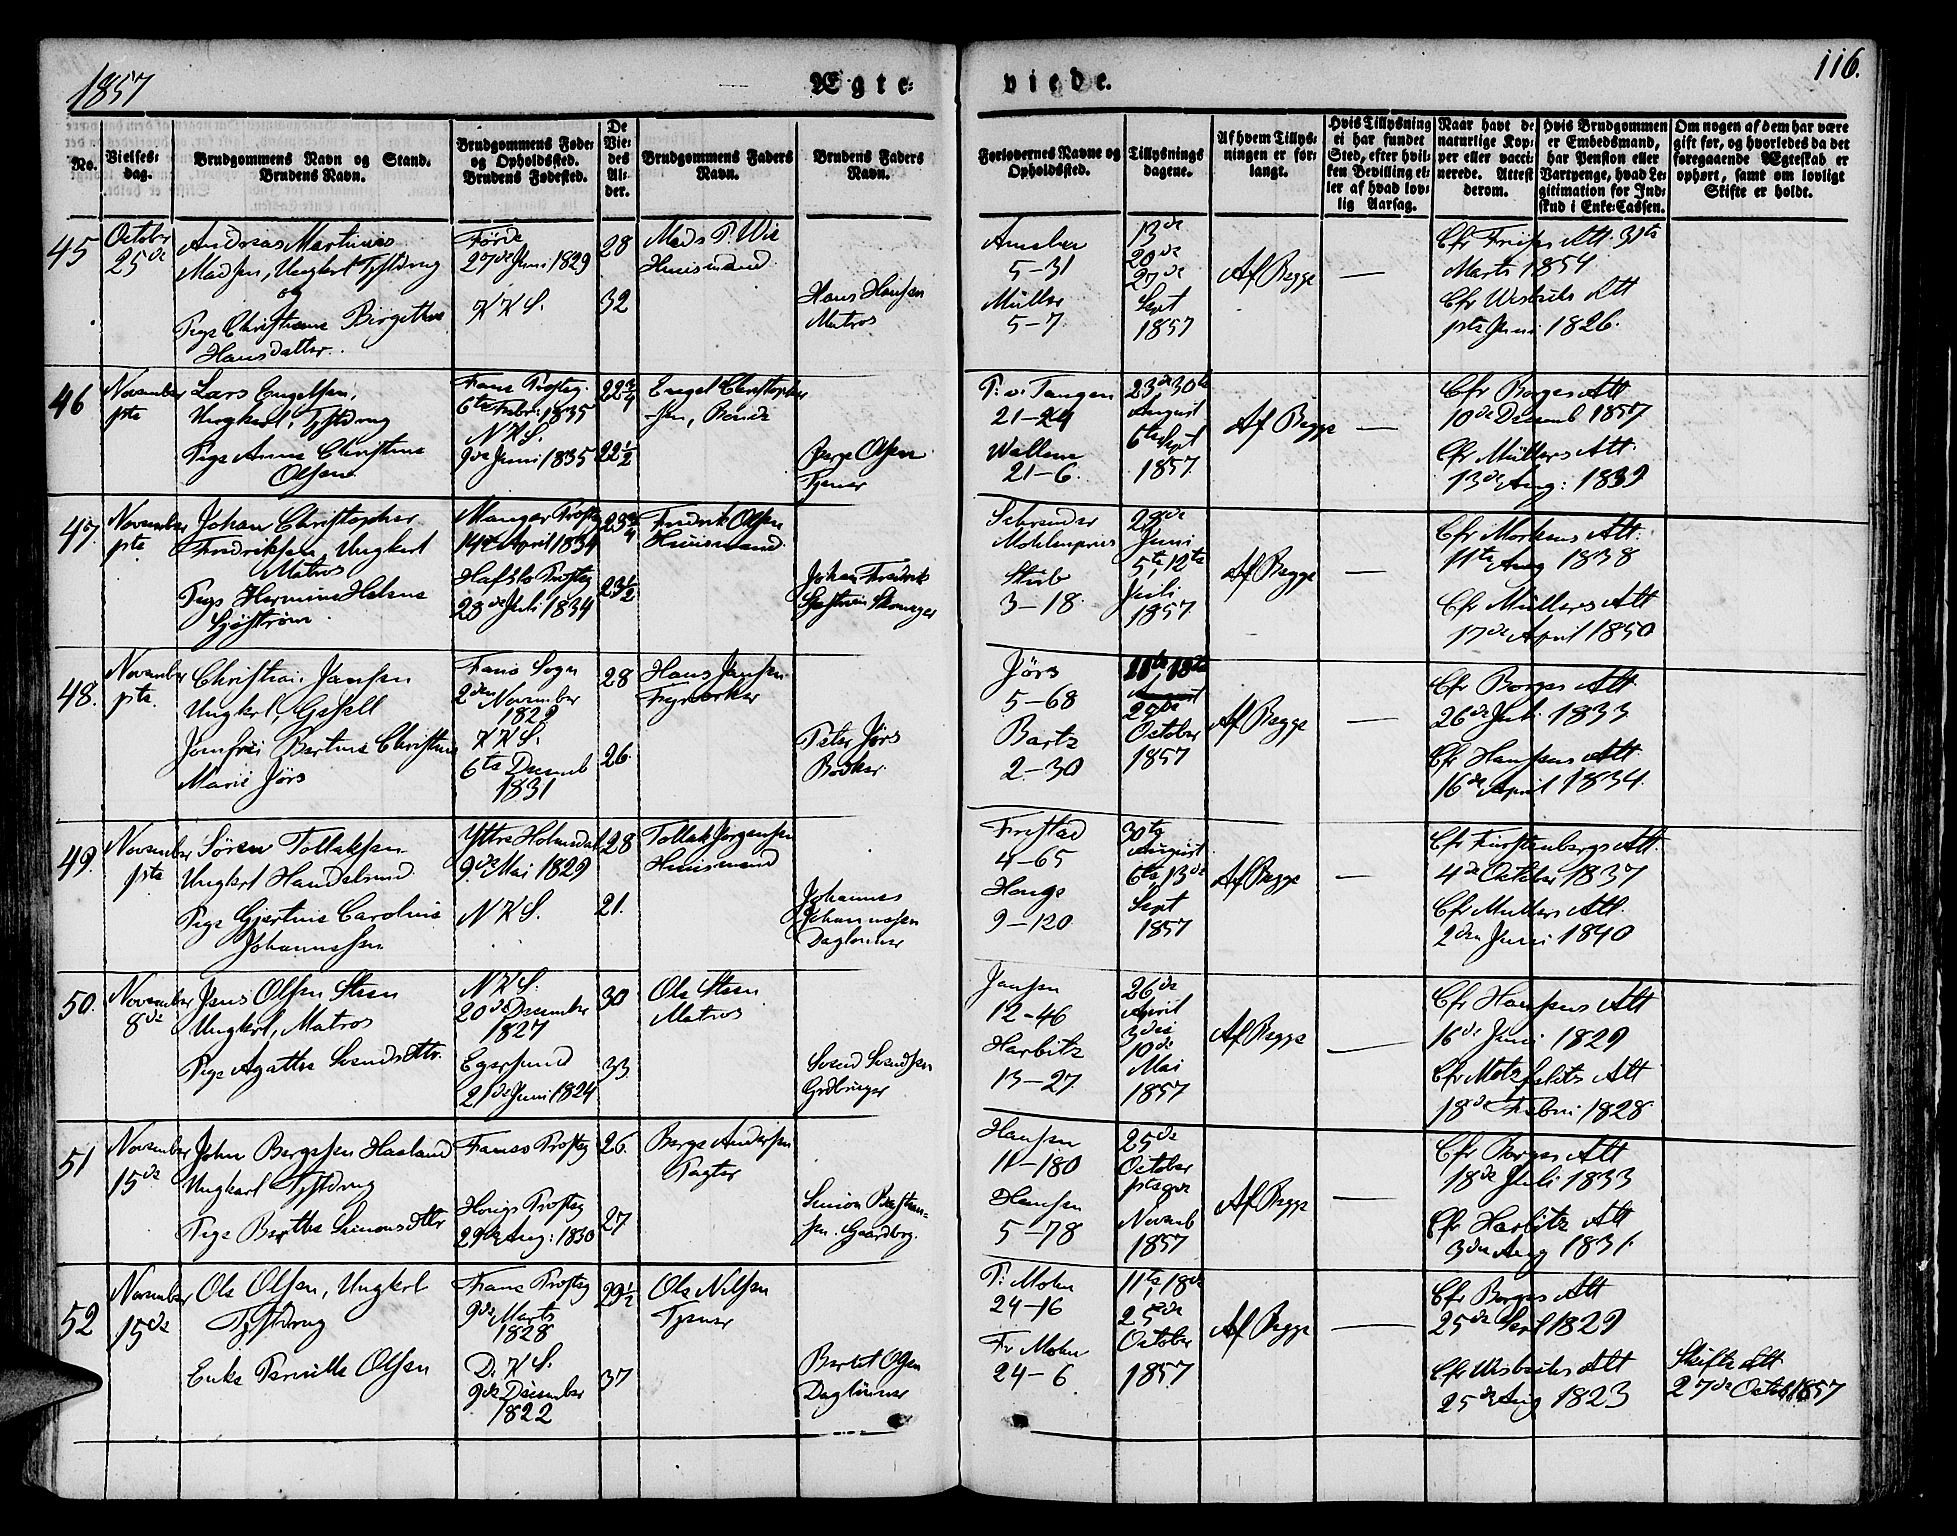 1857
Ægte-
viede.
116.
No.
Vielses-
dag.
Brudgommens Navn og Stand.
Brudens Navn.
Brudgommens Føde-
og Opholdssted.
Brudens Fødested.
De
Vie-
des
Al-
der.
Brudgommens Faders
Navn.
Brudens Faders
Navn.
Forlovernes Navne og
Opholdssted.
Tillysnings
dagene.
Af hvem Tillys-
ningen er for-
langt.
Hvis Tillysning
ei har fundet
Sted, efter hvil-
ken Bevilling el-
ler af hvad lov-
lig Aarsag.
Naar havt de
naturlige Kop-
per eller vacci-
nerede. Attest
derom.
Hvis Brudgommen
er Embedsmand,
har Pension eller
Vartpenge, hvad Le-
gitimation for Ind-
skud i Enke-Cassen.
Om nogen af dem har være
gift før, og hvorledes da det
foregaaende Ægteskab er
ophørt, samt om lovligt
Skifte er holdt.
45
October
25de
Andreas Martinus
Madsen, Ungkarl
og
Pige Christiane Birgethe
Hansdatter.
Førde
27de Juni 1829
K K S.
28
32
Mads P. Wie
Huusmand
Hans Hansen
Matros
5-31
Müller
5-7
13de
20de
27de
Sept
1857
Af Begge
—
Cfr Friises Att. 31te
Marts 1854
Cfr Wesbuhs Att
pta Juni 1826.
46
November
pta
Lars Engelsen,
Ungkarl,
Pige Anne Christine
Olsen
Fane Prostg.
6te Febr: 1835
N K S.
9de Juni 1835
22 3/4
22 1/2
Engel Christopher
-sen, Bonde
Børge Olsen
Tjener
P: v. Tangen
21-24
Wallem
21-6.
23de 30te
August
6te Sept
1857
Af Begge
—
Cfr Borges Att
10de Decemb 1857
Cfr Müllers Att.
13de Aug: 1839
47.
November
pta
Johan Christopher
Fredriksen, Ungkarl
Matros
Pige Hermine Helene
Sjøstrøm
Manger Prostg
14de April 1834
Hafslo Prostg
28de Juli 1834
23 3/4
23 1/2
Fredrik Olsen
Huusmand
Johan Fredrik
Sjøstrøm Skomager
Schrøder
Møhlenpriis
3-18.
28de
Juni
5te, 12te
Juli
1857
Af Begge
—
Cfr Mortens Att.
11te Aug 1838
Cfr Müllers Att
17de April 1850
48.
November
pta.
Christian Jansen
Ungkarl, Gesell
Jomfru Bertine Christine
Marie Jørs
Fane Sogn
2den November
1829
K K S.
6te Decemb
1831
28
26.
Hans Jansen
Peter Jørs
Bødker
Jørs
5-68
Bartz
2-30
11te 18te
October
1857
Af Begge
—
Cfr Borges Att.
26de Juli 1833
Cfr Hansens Att
16de April 1834.
49.
November
pta
Søren Tollaksen
Ungkarl Handelsmd
Pige Gjertine Caroline
Johannesen
Yttre Holmedal
9de Mai 1829
N K S.
28
21.
Tollak Jørgensen
Huusmand
Johannes
Johannessen
Daglønner
Frestad
4-65
Hauge
9-120
30te
August
6te, 13de
Sept
1857
Af Begge
—
Cfr Fürstenbergs Att.
4de October 1837
Cfr Müllers Att.
2den Juni 1840
50.
November
8de
Jens Olsen Steen
Ungkarl, Matros
Pige Agathe Svendsdtr.
N K S.
20de December
1827
Egersund
21de Juni 1824
30
33.
Ole Steen
Matros
Svend Svendsen
Jansen
12-46
Harbitz
13-27
26de
April
3die
10de
Mai
1857
Af Begge
—
Cfr Hansens Att
16de Juni 1829
Cfr Motzfeldts Att
18de Febr: 1828
51
November
15de
John Børgesen Hasland
Ungkarl
Pige Berthe Simonsdtr
Fanøs Prostg
Hougs Prostg
29de Aug: 1830
26.
27
Børge Andersen
Pagter
Simon Bastian-
sen. Gaardbrg.
Hansen
11-180
Hansen
5-78
25de
October
pta 8de
Novemb
1857
Af Begge
—
Cfr Borges Att
18de Juli 1833
Cfr Harbitz Att
3die Aug 1831.
52
November
15de
Ole Olsen, Ungkarl
Enke Pernille Olsen
Fane Prostg
9de Marts
1828
D. K S.
9de December
1822
29 1/2
37
Ole Nilsen
Tjener
Bertel Olsen
Daglønner
P: Mohn
24-16
Fr Mohn
24-6
11te, 18de
25de
October
1857
Af Begge
—
Cfr Borges Att
25de Sept 1829
Cfr Wesbuhs Att
25de Aug 1823
Skifte Att
27de Octob 1857